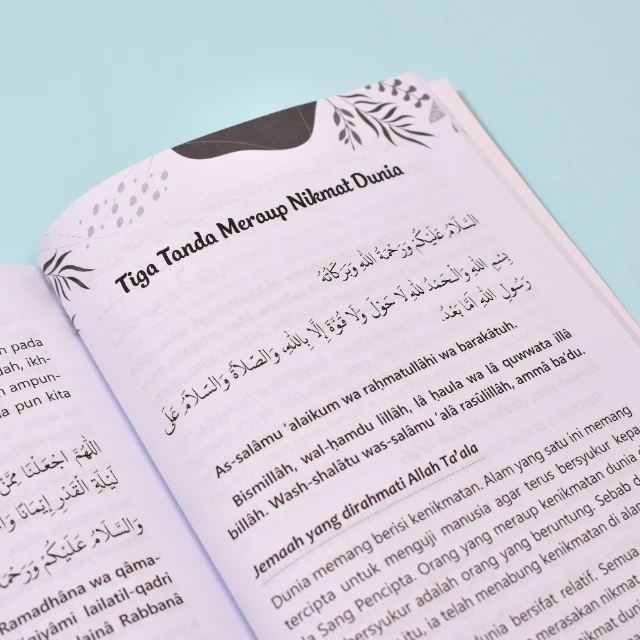 n pada
llah, ikh-
ampun-
a pun kita
اللهم اجعلنا ممن
ليلة القدر إيمانا وا
والسلام عليكم ورحم
Ramadhâna wa qâma-
iyâmi lailatil-qadri
lainâ Rabbanâ
Tiga Tanda Meraup Nikmat Dunia
السَّلَامُ عَلَيْكُمْ وَرَحْمَةُ اللهِ وَبَرَكَاتُهُ
بِسْمِ اللهِ وَالْحَمْدُ لِلهِ لَا حَوْلَ وَلَا قُوَّةَ إِلَّا بِاللهِ، وَالصَّلَاةُ وَالسَّلَامُ عَلَى
رَسُولِ اللهِ أَمَّا بَعْدُ
As-salâmu 'alaikum wa raḥmatullâhi wa barakâtuh.
Bismillâh, wal-ḥamdu lillâh, lâ ḥaula wa lâ quwwata illâ
billâh. Wash-shalâtu was-salâmu 'alâ rasûlillâh, ammâ ba'du.
Jemaah yang dirahmati Allah Ta'ala
Dunia memang berisi kenikmatan. Alam yang satu ini memang
tercipta untuk menguji manusia agar terus bersyukur kepa
da Sang Pencipta. Orang yang meraup kenikmatan dunia d
bersyukur adalah orang yang beruntung. Sebab d
itu, ia telah menabung kenikmatan di alam
dunia bersifat relatif. Semua
merasakan nikmat